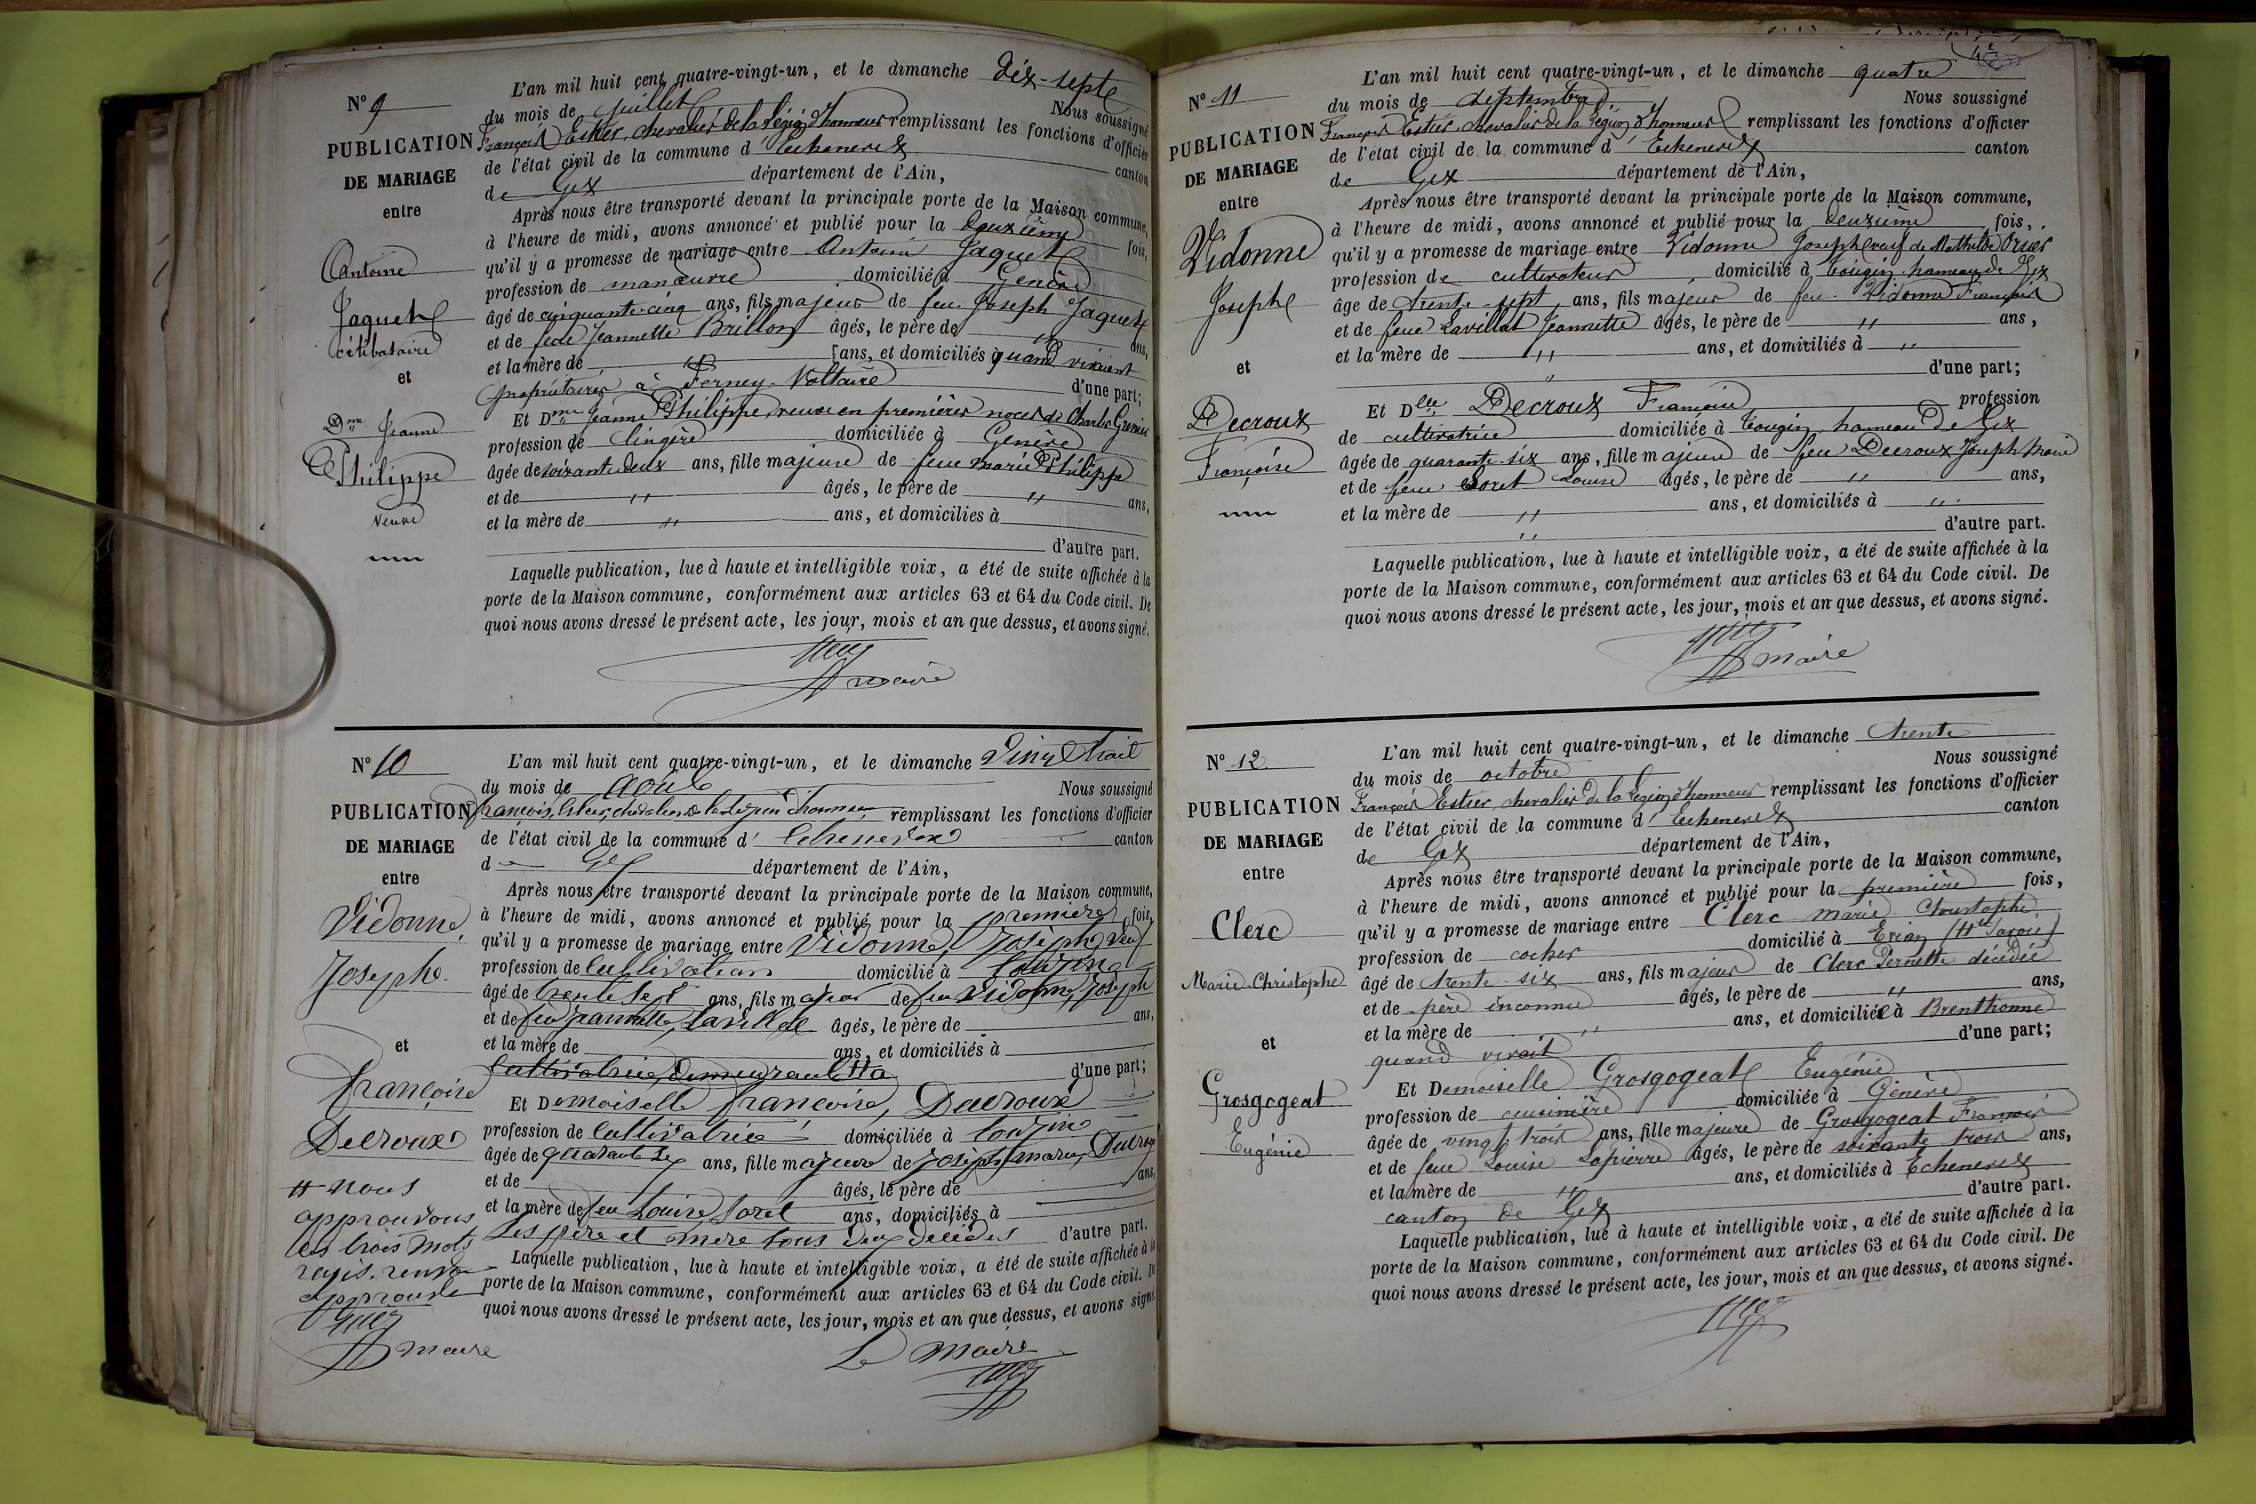 N° 9
PUBLICATION
DE MARIAGE
entre
Antoine
Jaquet
célibataire
et
Dme Jeanne
Philippe
veuve
L'an mil huit cent quatre-vingt-un, et le dimanche dix-sept
du mois de juillet Nous soussigné
François Estier, chevalier de la Légion d'honneur remplissant les fonctions d'officier
de l'état civil de la commune d'Echenevex canton
de Gex département de l'Ain,
Après nous être transporté devant la principale porte de la Maison commune,
à l'heure de midi, avons annoncé et publié pour la deuxième fois,
qu'il y a promesse de mariage entre Antoine Jaquet
profession de manœuvre domicilié à Genève
âgé de cinquante-cinq ans, fils majeur de feu Joseph Jaquet
et de feue Jeannette Brillon âgés, le père de " ans,
et la mère de " ans, et domiciliés à quand vivaient
propriétaires à Ferney-Voltaire d'une part;
Et Dme Jeanne Philippe, veuve en premières noces de Charles
profession de lingère domiciliée à Genève
âgée de soixante deux ans, fille majeure de feue Marie Philippe
et de " âgés, le père de " ans,
et la mère de " ans, et domiciliés à
d'autre part.
Laquelle publication, lue à haute et intelligible voix, a été de suite affichée à la
porte de la Maison commune, conformément aux articles 63 et 64 du Code civil. De
quoi nous avons dressé le présent acte, les jour, mois et an que dessus, et avons signé.
maire
N° 10
PUBLICATION
DE MARIAGE
entre
Vidonne
Joseph
et
Françoise
Decroux
# nous
approuvons
les trois mots
rayés. renvoi
approuvé
maire
L'an mil huit cent quatre-vingt-un, et le dimanche Vingt huit
du mois de Août Nous soussigné
François Estier, chevalier de la Légion d'honneur remplissant les fonctions d'officier
de l'état civil de la commune d'Echenevex canton
de Gex département de l'Ain,
Après nous être transporté devant la principale porte de la Maison commune,
à l'heure de midi, avons annoncé et publié pour la première fois,
qu'il y a promesse de mariage entre Vidonne, Joseph, veuf
profession de Cultivateur domicilié à Tougin
âgé de trente sept ans, fils majeur de feu Vidonne, Joseph
et de feu Jeannette Lavillat âgés, le père de ans,
et la mère de ans, et domiciliés à
Cultivatrice, demeurant # à d'une part;
Et Demoiselle Françoise, Decroux
profession de Cultivatrice domiciliée à Tougin
âgée de quarante six ans, fille majeure de Joseph marie, Decroux
et de âgés, le père de ans,
et la mère de feu Louise Soret ans, domiciliés à
Les père et mère tous deux décédés d'autre part.
Laquelle publication, lue à haute et intelligible voix, a été de suite affichée à la
porte de la Maison commune, conformément aux articles 63 et 64 du Code civil. De
quoi nous avons dressé le présent acte, les jour, mois et an que dessus, et avons signé
Le Maire
N° 11
PUBLICATION
DE MARIAGE
entre
Vidonne
Joseph
et
Decroux
Françoise
L'an mil huit cent quatre-vingt-un, et le dimanche quatre
du mois de septembre Nous soussigné
François Estier, chevalier de la Légion d'honneur remplissant les fonctions d'officier
de l'état civil de la commune d'Echenevex canton
de Gex département de l'Ain,
Après nous être transporté devant la principale porte de la Maison commune,
à l'heure de midi, avons annoncé et publié pour la deuxième fois,
qu'il y a promesse de mariage entre Vidonne Joseph veuf de Mathilde
profession de cultivateur domicilié à Tougin hameau de Gex
âgé de trente-sept ans, fils majeur de feu Vidonne François
et de feue Lavillat Jeannette âgés, le père de " ans,
et la mère de " ans, et domiciliés à "
" d'une part;
Et Dlle Decroux Françoise profession
de cultivatrice domiciliée à Tougin hameau de Gex
âgée de quarante-six ans, fille majeure de feu Decroux Joseph Marie
et de feue Soret Louise âgés, le père de " ans,
et la mère de " ans, et domiciliés à "
" d'autre part.
Laquelle publication, lue à haute et intelligible voix, a été de suite affichée à la
porte de la Maison commune, conformément aux articles 63 et 64 du Code civil. De
quoi nous avons dressé le présent acte, les jour, mois et an que dessus, et avons signé.
maire
N° 12
PUBLICATION
DE MARIAGE
entre
Clerc
Marie-Christophe
et
Grosgogeat
Eugénie
L'an mil huit cent quatre-vingt-un, et le dimanche trente
du mois de octobre Nous soussigné
François Estier, chevalier de la Légion d'honneur remplissant les fonctions d'officier
de l'état civil de la commune d'Echenevex canton
de Gex département de l'Ain,
Après nous être transporté devant la principale porte de la Maison commune,
à l'heure de midi, avons annoncé et publié pour la première fois,
qu'il y a promesse de mariage entre Clerc Marie Christophe
profession de cocher domicilié à Evian (Hte Savoie)
âgé de trente-six ans, fils majeur de Clerc Pernette décédée
et de père inconnu âgés, le père de " ans,
et la mère de " ans, et domiciliée à Brenthonne
quand vivait d'une part;
Et Demoiselle Grosgogeat Eugénie
profession de cuisinière domiciliée à Genève
âgée de vingt trois ans, fille majeure de Grosgogeat François
et de feue Louise Lapierre âgés, le père de soixante trois ans,
et la mère de " ans, et domiciliés à Echenevex
canton de Gex d'autre part.
Laquelle publication, lue à haute et intelligible voix, a été de suite affichée à la
porte de la Maison commune, conformément aux articles 63 et 64 du Code civil. De
quoi nous avons dressé le présent acte, les jour, mois et an que dessus, et avons signé.